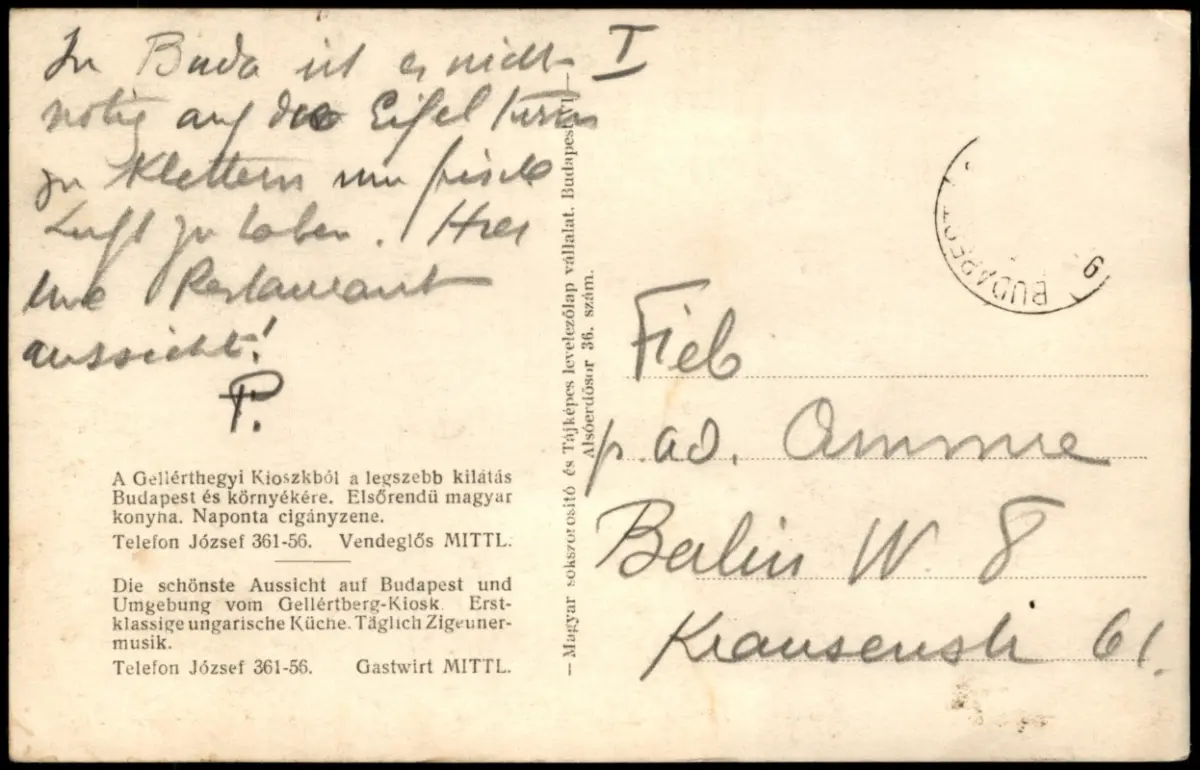 In Buda ist es nicht
nötig auf die Eifel turm
zu klettern um frische
Luft zu haben. Hier
eine Restaurant
aussicht!
P.
T
A Gellérthegyi Kioszkból a legszebb kilátás
Budapest és környékére. Elsőrendü magyar
konyha. Naponta cigányzene.
Telefon József 361-56. Vendeglős MITTL.
Die schönste Aussicht auf Budapest und
Umgebung vom Gellértberg-Kiosk. Erst-
klassige ungarische Küche. Täglich Zigeuner-
musik.
Telefon József 361-56. Gastwirt MITTL.
— Magyar sokszorosító és Tájképes levelezőlap vállalat. Budapest, VI —
Alsóerdősor 36. szám.
BUDAPEST
Fieb
p. ad. Ammre
Berlin W. 8
Krausenstr 61.